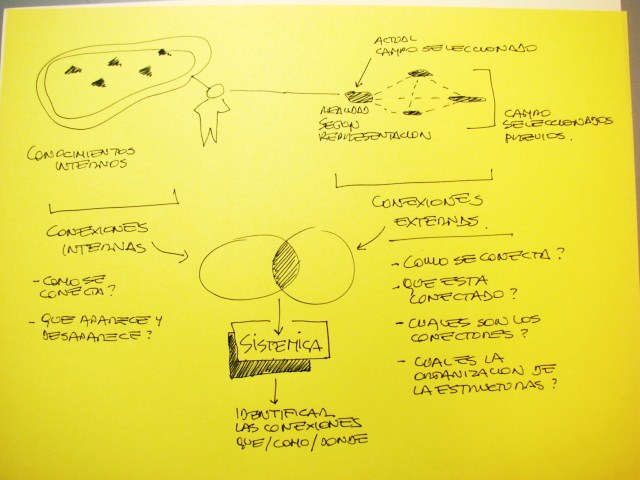 ACTUAL
CAMPO SELECCIONADO
REALIDAD
SEGÚN
REPRESENTACION
CAMPO
SELECCIONADOS
PREVIOS.
CONOCIMIENTOS
INTERNOS
CONEXIONES
INTERNAS
- COMO SE
CONECTA?
- QUE APARECE Y
DESAPARECE?
CONEXIONES
EXTERNAS.
- COMO SE CONECTA?
- QUE ESTA
CONECTADO?
- CUALES SON LOS
CONECTORES?
- CUAL ES LA
ORGANIZACION DE
LA ESTRUCTURAS?
SISTEMICA
IDENTIFICAR
LAS CONEXIONES
QUE/COMO/DONDE